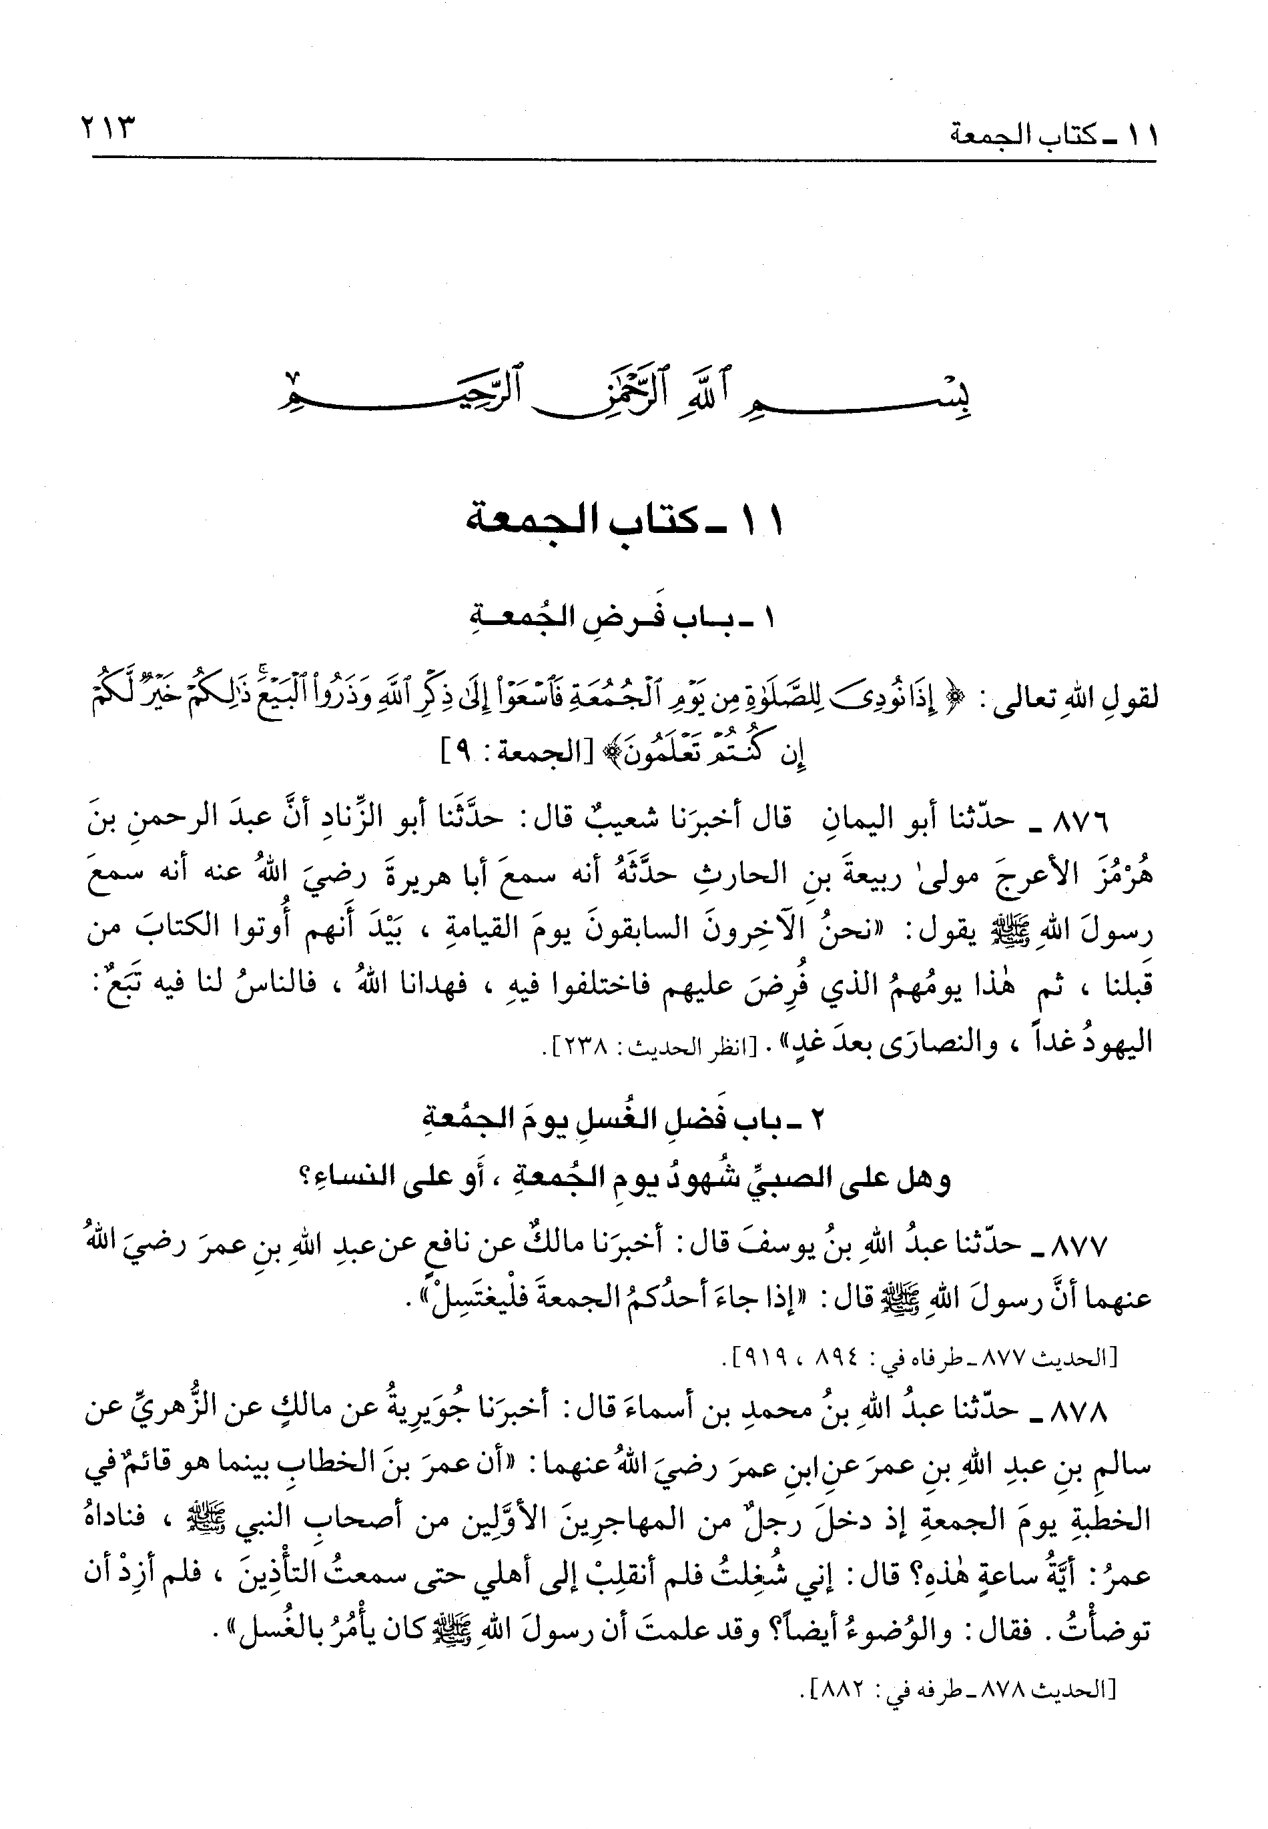 ١١ ـ كتاب الجمعة ٢١٣
بِسْمِ ٱللَّهِ ٱلرَّحْمَٰنِ ٱلرَّحِيمِ
١١ ـ كتاب الجمعة
١ ـ بـاب فَـرضِ الجُمعـةِ
لقولِ اللهِ تعالى: ﴿ إِذَا نُودِىَ لِلصَّلَوٰةِ مِن يَوْمِ ٱلْجُمُعَةِ فَٱسْعَوْا۟ إِلَىٰ ذِكْرِ ٱللَّهِ وَذَرُوا۟ ٱلْبَيْعَ ۚ ذَٰلِكُمْ خَيْرٌ لَّكُمْ
إِن كُنتُمْ تَعْلَمُونَ﴾ [الجمعة: ٩]
٨٧٦ ـ حدّثنا أبو اليمانِ قال أخبرَنا شعيبٌ قال: حدَّثَنا أبو الزِّنادِ أنَّ عبدَ الرحمنِ بنَ
هُرْمُزَ الأعرجَ مولىٰ ربيعةَ بنِ الحارثِ حدَّثَهُ أنه سمعَ أبا هريرةَ رضيَ اللهُ عنه أنه سمعَ
رسولَ اللهِ ﷺ يقول: «نحنُ الآخِرونَ السابقونَ يومَ القيامةِ ، بَيْدَ أَنهم أُوتوا الكتابَ من
قَبلنا ، ثم هٰذا يومُهمُ الذي فُرِضَ عليهم فاختلفوا فيهِ ، فهدانا اللهُ ، فالناسُ لنا فيه تَبَعٌ:
اليهودُ غداً ، والنصارَى بعدَ غدٍ». [انظر الحديث: ٢٣٨].
٢ ـ باب فَضلِ الغُسلِ يومَ الجمُعةِ
وهل على الصبيِّ شُهودُ يومِ الجُمعةِ ، أَو على النساءِ؟
٨٧٧ ـ حدّثنا عبدُ اللهِ بنُ يوسفَ قال: أخبرَنا مالكٌ عن نافعٍ عن عبدِ اللهِ بنِ عمرَ رضيَ اللهُ
عنهما أنَّ رسولَ اللهِ ﷺ قال: «إذا جاءَ أحدُكمُ الجمعةَ فلْيغتَسِلْ».
[الحديث ٨٧٧ ـ طرفاه في: ٨٩٤ ، ٩١٩].
٨٧٨ ـ حدّثنا عبدُ اللهِ بنُ محمدِ بن أسماءَ قال: أخبرَنا جُوَيرِيةُ عن مالكٍ عن الزُّهريِّ عن
سالمِ بنِ عبدِ اللهِ بنِ عمرَ عنِ ابنِ عمرَ رضيَ اللهُ عنهما: «أن عمرَ بنَ الخطابِ بينما هو قائمٌ في
الخطبةِ يومَ الجمعةِ إذ دخلَ رجلٌ من المهاجرِينَ الأوَّلِين من أصحابِ النبي ﷺ ، فناداهُ
عمرُ: أيَّةُ ساعةٍ هٰذهِ؟ قال: إني شُغِلتُ فلم أنقلِبْ إلى أهلي حتى سمعتُ التأْذِينَ ، فلم أزِدْ أن
توضأْتُ. فقال: والوُضوءُ أيضاً؟ وقد علمتَ أن رسولَ اللهِ ﷺ كان يأْمُرُ بالغُسل».
[الحديث ٨٧٨ ـ طرفه في: ٨٨٢].